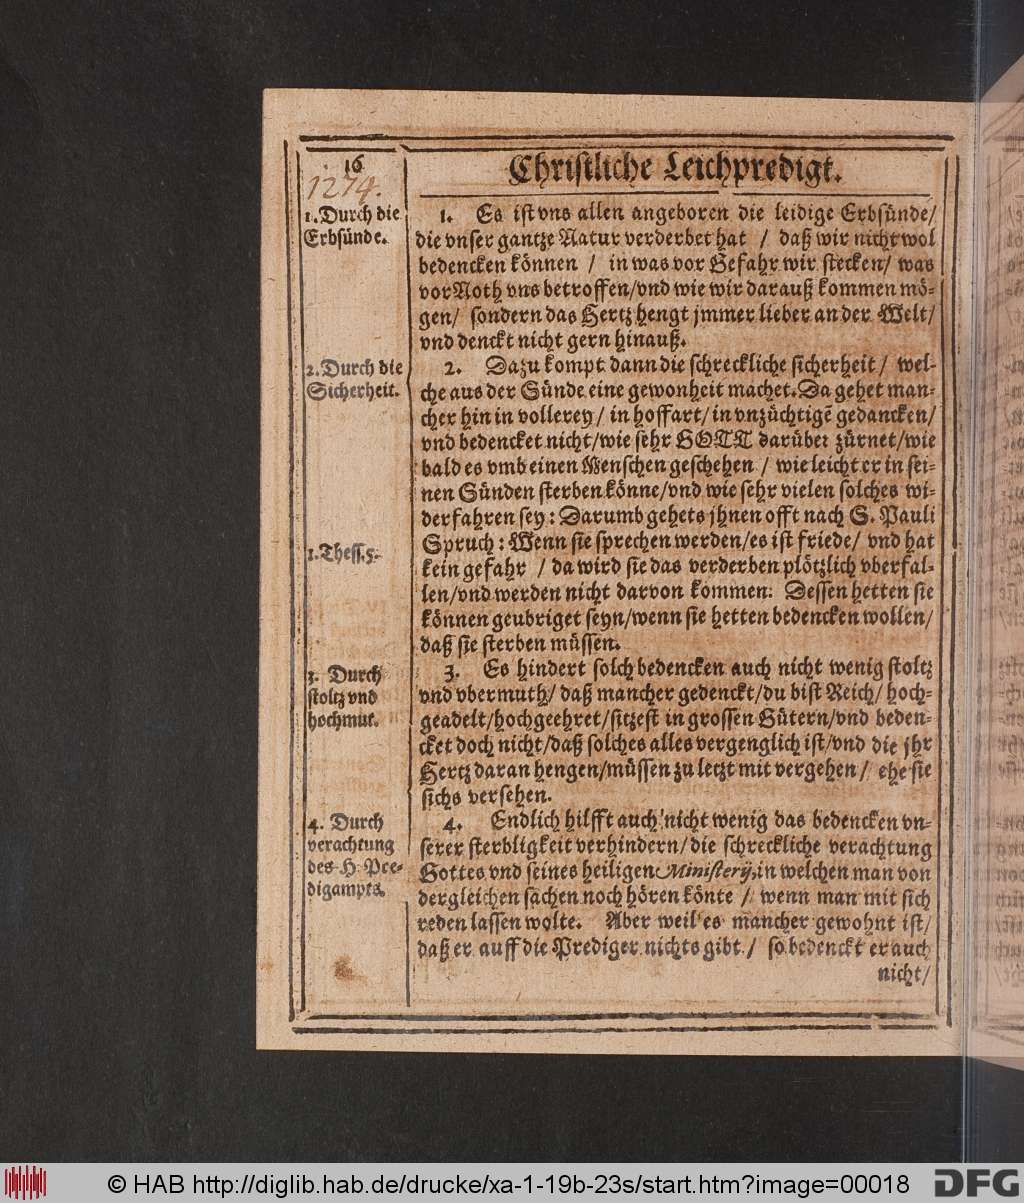 16
1274.
Christliche Leichpredigt.
1. Durch die
Erbsünde.
1. Es ist vns allen angeboren die leidige Erbsünde/
die vnser gantze Natur verderbet hat / daß wir nicht wol
bedencken können / in was vor Gefahr wir stecken/ was
vor Noth vns betroffen/vnd wie wir darauß kommen mö-
gen/ sondern das Hertz hengt jmmer lieber an der Welt/
vnd denckt nicht gern hinauß.
2. Durch die
Sicherheit.
2. Dazu kompt dann die schreckliche sicherheit / wel-
che aus der Sünde eine gewonheit machet. Da gehet man-
cher hin in vollerey / in hoffart/ in vnzüchtigẽ gedancken/
vnd bedencket nicht/wie sehr GOTT darüber zürnet/wie
bald es vmb einen Menschen geschehen / wie leicht er in sei-
nen Sünden sterben könne/vnd wie sehr vielen solches wi-
derfahren sey: Darumb gehets jhnen offt nach S. Pauli
1. Thess. 5.
Spruch: Wenn sie sprechen werden/es ist friede/ vnd hat
kein gefahr / da wird sie das verderben plötzlich vberfal-
len/vnd werden nicht darvon kommen: Dessen hetten sie
können geubriget seyn/wenn sie hetten bedencken wollen/
daß sie sterben müssen.
3. Durch
stoltz vnd
hochmut.
3. Es hindert solch bedencken auch nicht wenig stoltz
vnd vbermuth/ daß mancher gedenckt/du bist Reich/ hoch-
geadelt/hochgeehret/sitzest in grossen Gütern/vnd beden-
cket doch nicht/daß solches alles vergenglich ist/vnd die jhr
Hertz daran hengen/müssen zu letzt mit vergehen / ehe sie
sichs versehen.
4. Durch
verachtung
des H. Pre-
digampts.
4. Endlich hilfft auch nicht wenig das bedencken vn-
serer sterbligkeit verhindern/ die schreckliche verachtung
Gottes vnd seines heiligen Ministerij, in welchen man von
dergleichen sachen noch hören könte / wenn man mit sich
reden lassen wolte. Aber weil es mancher gewohnt ist/
daß er auff die Prediger nichts gibt / so bedenckt er auch
nicht/
© HAB http://diglib.hab.de/drucke/xa-1-19b-23s/start.htm?image=00018
DFG